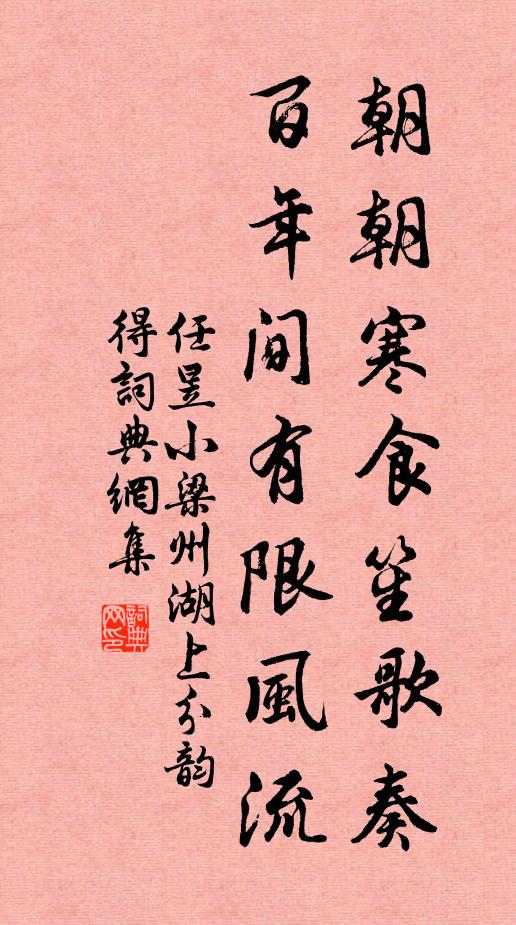 朝朝寒食笙歌奏
百年間有限風流
任昱小梁州湖上分韵
得詞典網集
詞典网印